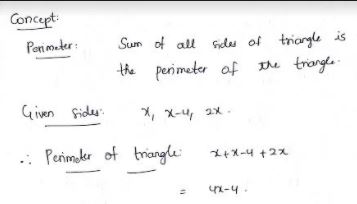 Concept:
Perimeter: Sum of all sides of triangle is
the perimeter of the triangle.
Given sides: x, x-4, 2x.
∴ Perimeter of triangle: x+x-4+2x
= 4x-4.